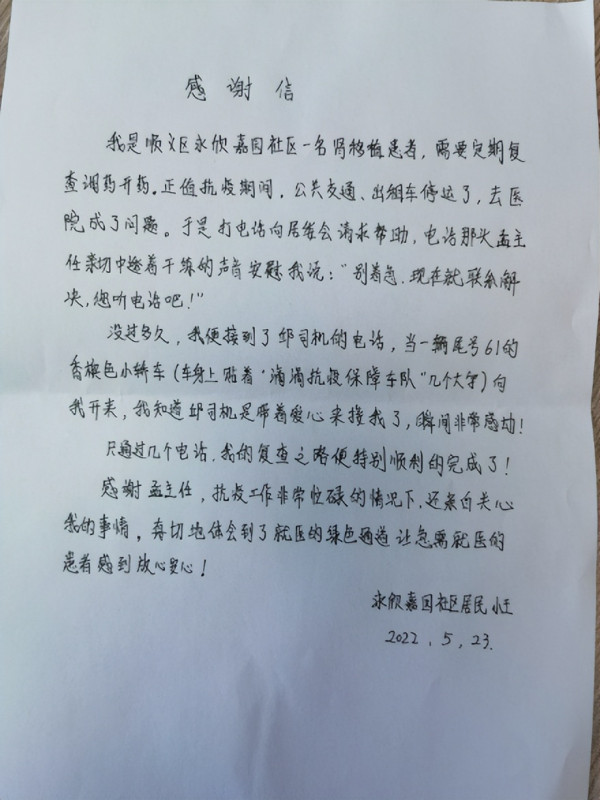 感谢信
我是顺义区永欣嘉园社区一名肾移植患者，需要定期复
查调药开药。正值抗疫期间，公共交通、出租车停运了，去医
院成了问题。于是打电话向居委会请求帮助，电话那头孟主
任亲切中透着干练的声音安慰我说："别着急.现在就联系解
决，您听电话吧！"
没过多久，我便接到了邱司机的电话，当一辆尾号61的
香槟色小轿车（车身上贴着"滴滴抗疫保障车队"几个大字）向
我开来，我知道邱司机是带着爱心来接我了，瞬间非常感动！
只通过几个电话.我的复查之路便特别顺利的完成了！
感谢孟主任，抗疫工作非常忙碌的情况下，还亲自关心
我的事情，真切地体会到了就医的绿色通道 让急需就医的
患者感到放心安心！
永欣嘉园社区居民 小王
2022.5.23.